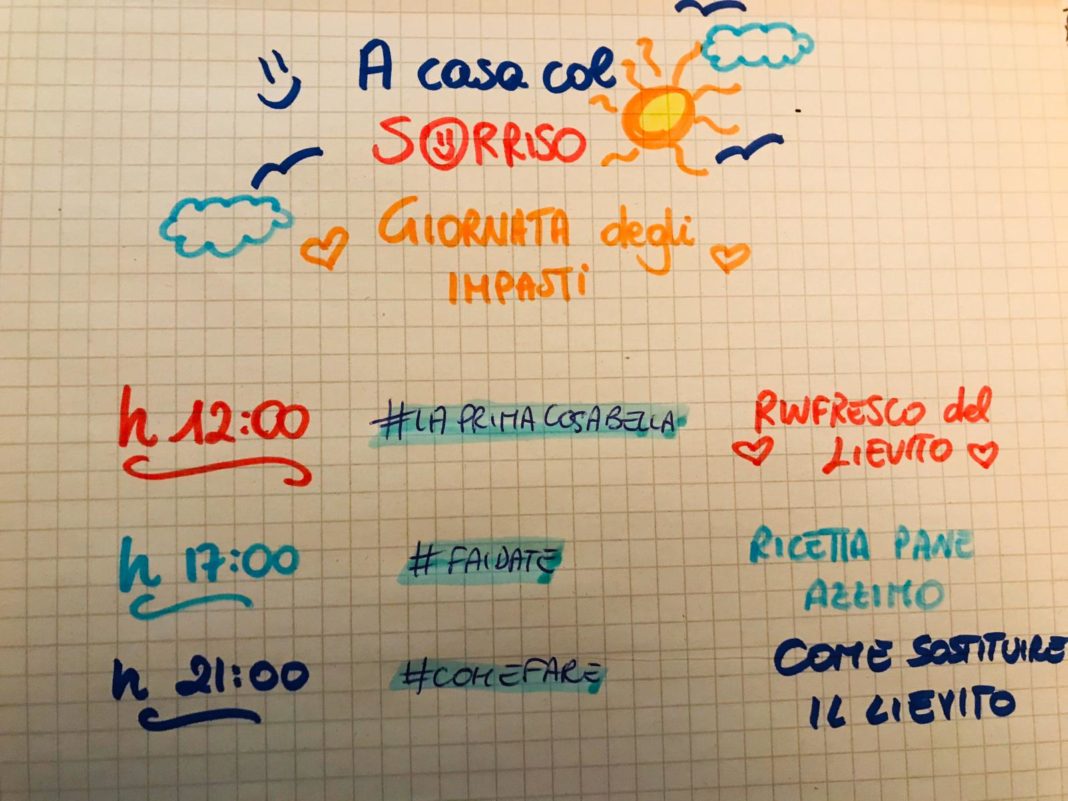 A casa col
SORRISO
GIORNATA degli
IMPASTI
h 12:00 #LAPRIMACOSABELLA RINFRESCO del
LIEVITO
h 17:00 #FAIDATE RICETTA PANE
AZZIMO
h 21:00 #COMEFARE COME SOSTITUIRE
IL LIEVITO